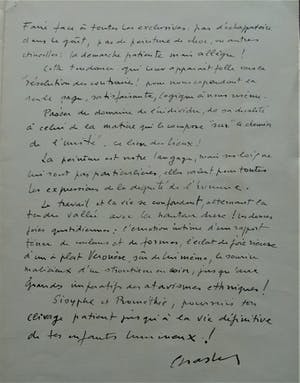 Faire face à toutes les exclusives, pas d'échappatoire
dans le goût, pas de peinture de choc, ou autres
: la démarche patiente mais allègre !
Cette tendance qui leur apparaît telle vous la
"résolution des contraires", pour nous cependant la
seule sage, satisfaisante, logique à nous même.
Passer du domaine de l'individu, de sa dualité
à celui de la matière qui le compose "sur" le chemin
de l'unité. ce lieu des lieux !
La peinture est notre langage, mais nos lois ne
lui sont pas particulières, elles valent pour toutes
les expressions de la dignité de l'homme.
Le travail et la vie se confondent, alternant la
tendre vallée avec la hauteur ! les demes
joies quotidiennes : l'émotion intime d'un rapport
tenu de couleurs et de formes, l'éclat de joie
d'un à plat Véronèse, sûr de lui même, le sourire
malicieux d'un strontium en coin, jusqu'aux
grands impératifs des atavismes ethniques !
Sisyphe et Prométhée, poursuivez ton
clivage patient jusqu'à la vie définitive
de tes enfants lumineux !